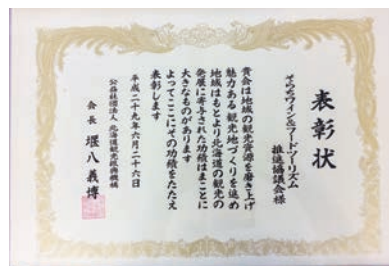 表彰状
そらちワイン＆フードツーリズム
推進協議会様
貴会は地域の観光資源を磨き上げ
魅力ある観光地づくりを進め
地域はもとより北海道の観光の
発展に寄与された功績はまことに
大きなものがあります
よってここにその功績をたたえ
表彰します
平成二十九年六月二十六日
公益社団法人 北海道観光振興機構
会長 堰八義博